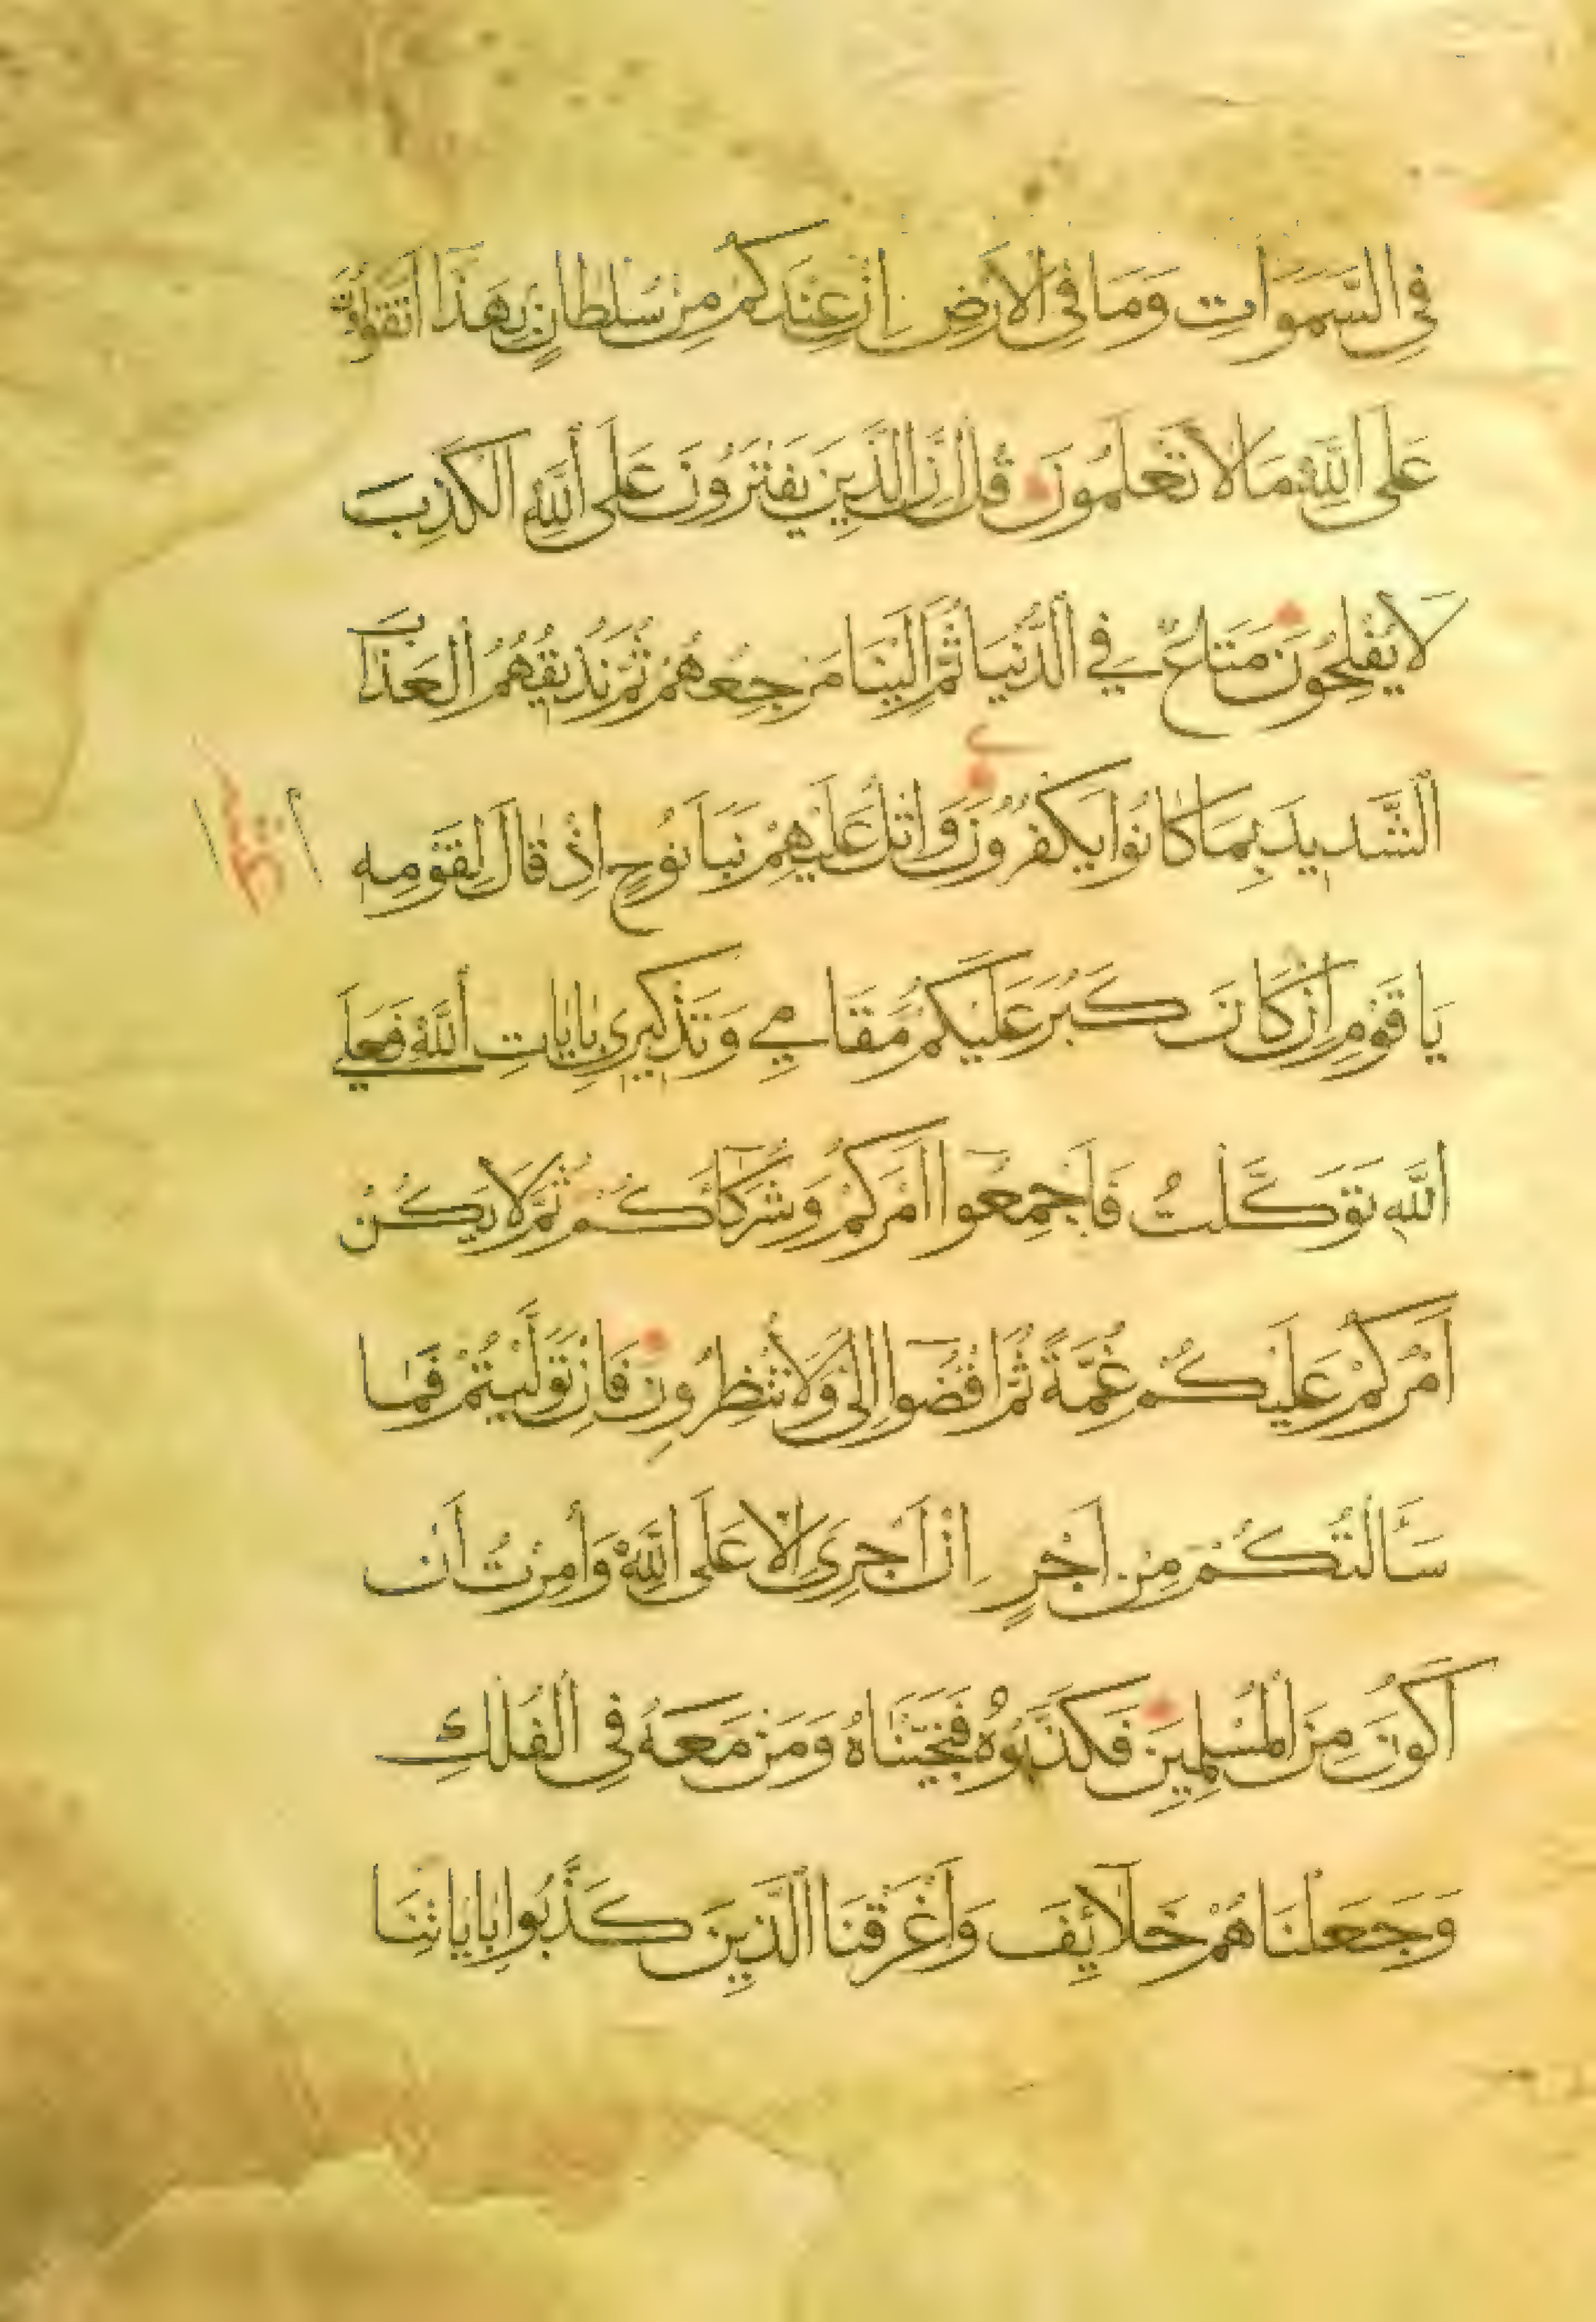 فِي السَّمَوَاتِ وَمَا فِي الْاَرْضِ اِنْ عِنْدَكُمْ مِنْ سُلْطَانٍ بِهَذَا اَتَقُولُونَ
عَلَى اللَّهِ مَا لَا تَعْلَمُونَ قُلْ اِنَّ الَّذِينَ يَفْتَرُونَ عَلَى اللَّهِ الْكَذِبَ
لَا يُفْلِحُونَ مَتَاعٌ فِي الدُّنْيَا ثُمَّ اِلَيْنَا مَرْجِعُهُمْ ثُمَّ نُذِيقُهُمُ الْعَذَابَ
الشَّدِيدَ بِمَا كَانُوا يَكْفُرُونَ وَاتْلُ عَلَيْهِمْ نَبَاَ نُوحٍ اِذْ قَالَ لِقَوْمِهِ
يَا قَوْمِ اِنْ كَانَ كَبُرَ عَلَيْكُمْ مَقَامِي وَتَذْكِيرِي بِاٰيَاتِ اللَّهِ فَعَلَى
اللَّهِ تَوَكَّلْتُ فَاَجْمِعُوا اَمْرَكُمْ وَشُرَكَاۤئَكُمْ ثُمَّ لَا يَكُنْ
اَمْرُكُمْ عَلَيْكُمْ غُمَّةً ثُمَّ اقْضُوا اِلَيَّ وَلَا تُنْظِرُونِ فَاِنْ تَوَلَّيْتُمْ فَمَا
سَاَلْتُكُمْ مِنْ اَجْرٍ اِنْ اَجْرِيَ اِلَّا عَلَى اللَّهِ وَاُمِرْتُ اَنْ
اَكُونَ مِنَ الْمُسْلِمِينَ فَكَذَّبُوهُ فَنَجَّيْنَاهُ وَمَنْ مَعَهُ فِي الْفُلْكِ
وَجَعَلْنَاهُمْ خَلَاۤئِفَ وَاَغْرَقْنَا الَّذِينَ كَذَّبُوا بِاٰيَاتِنَا